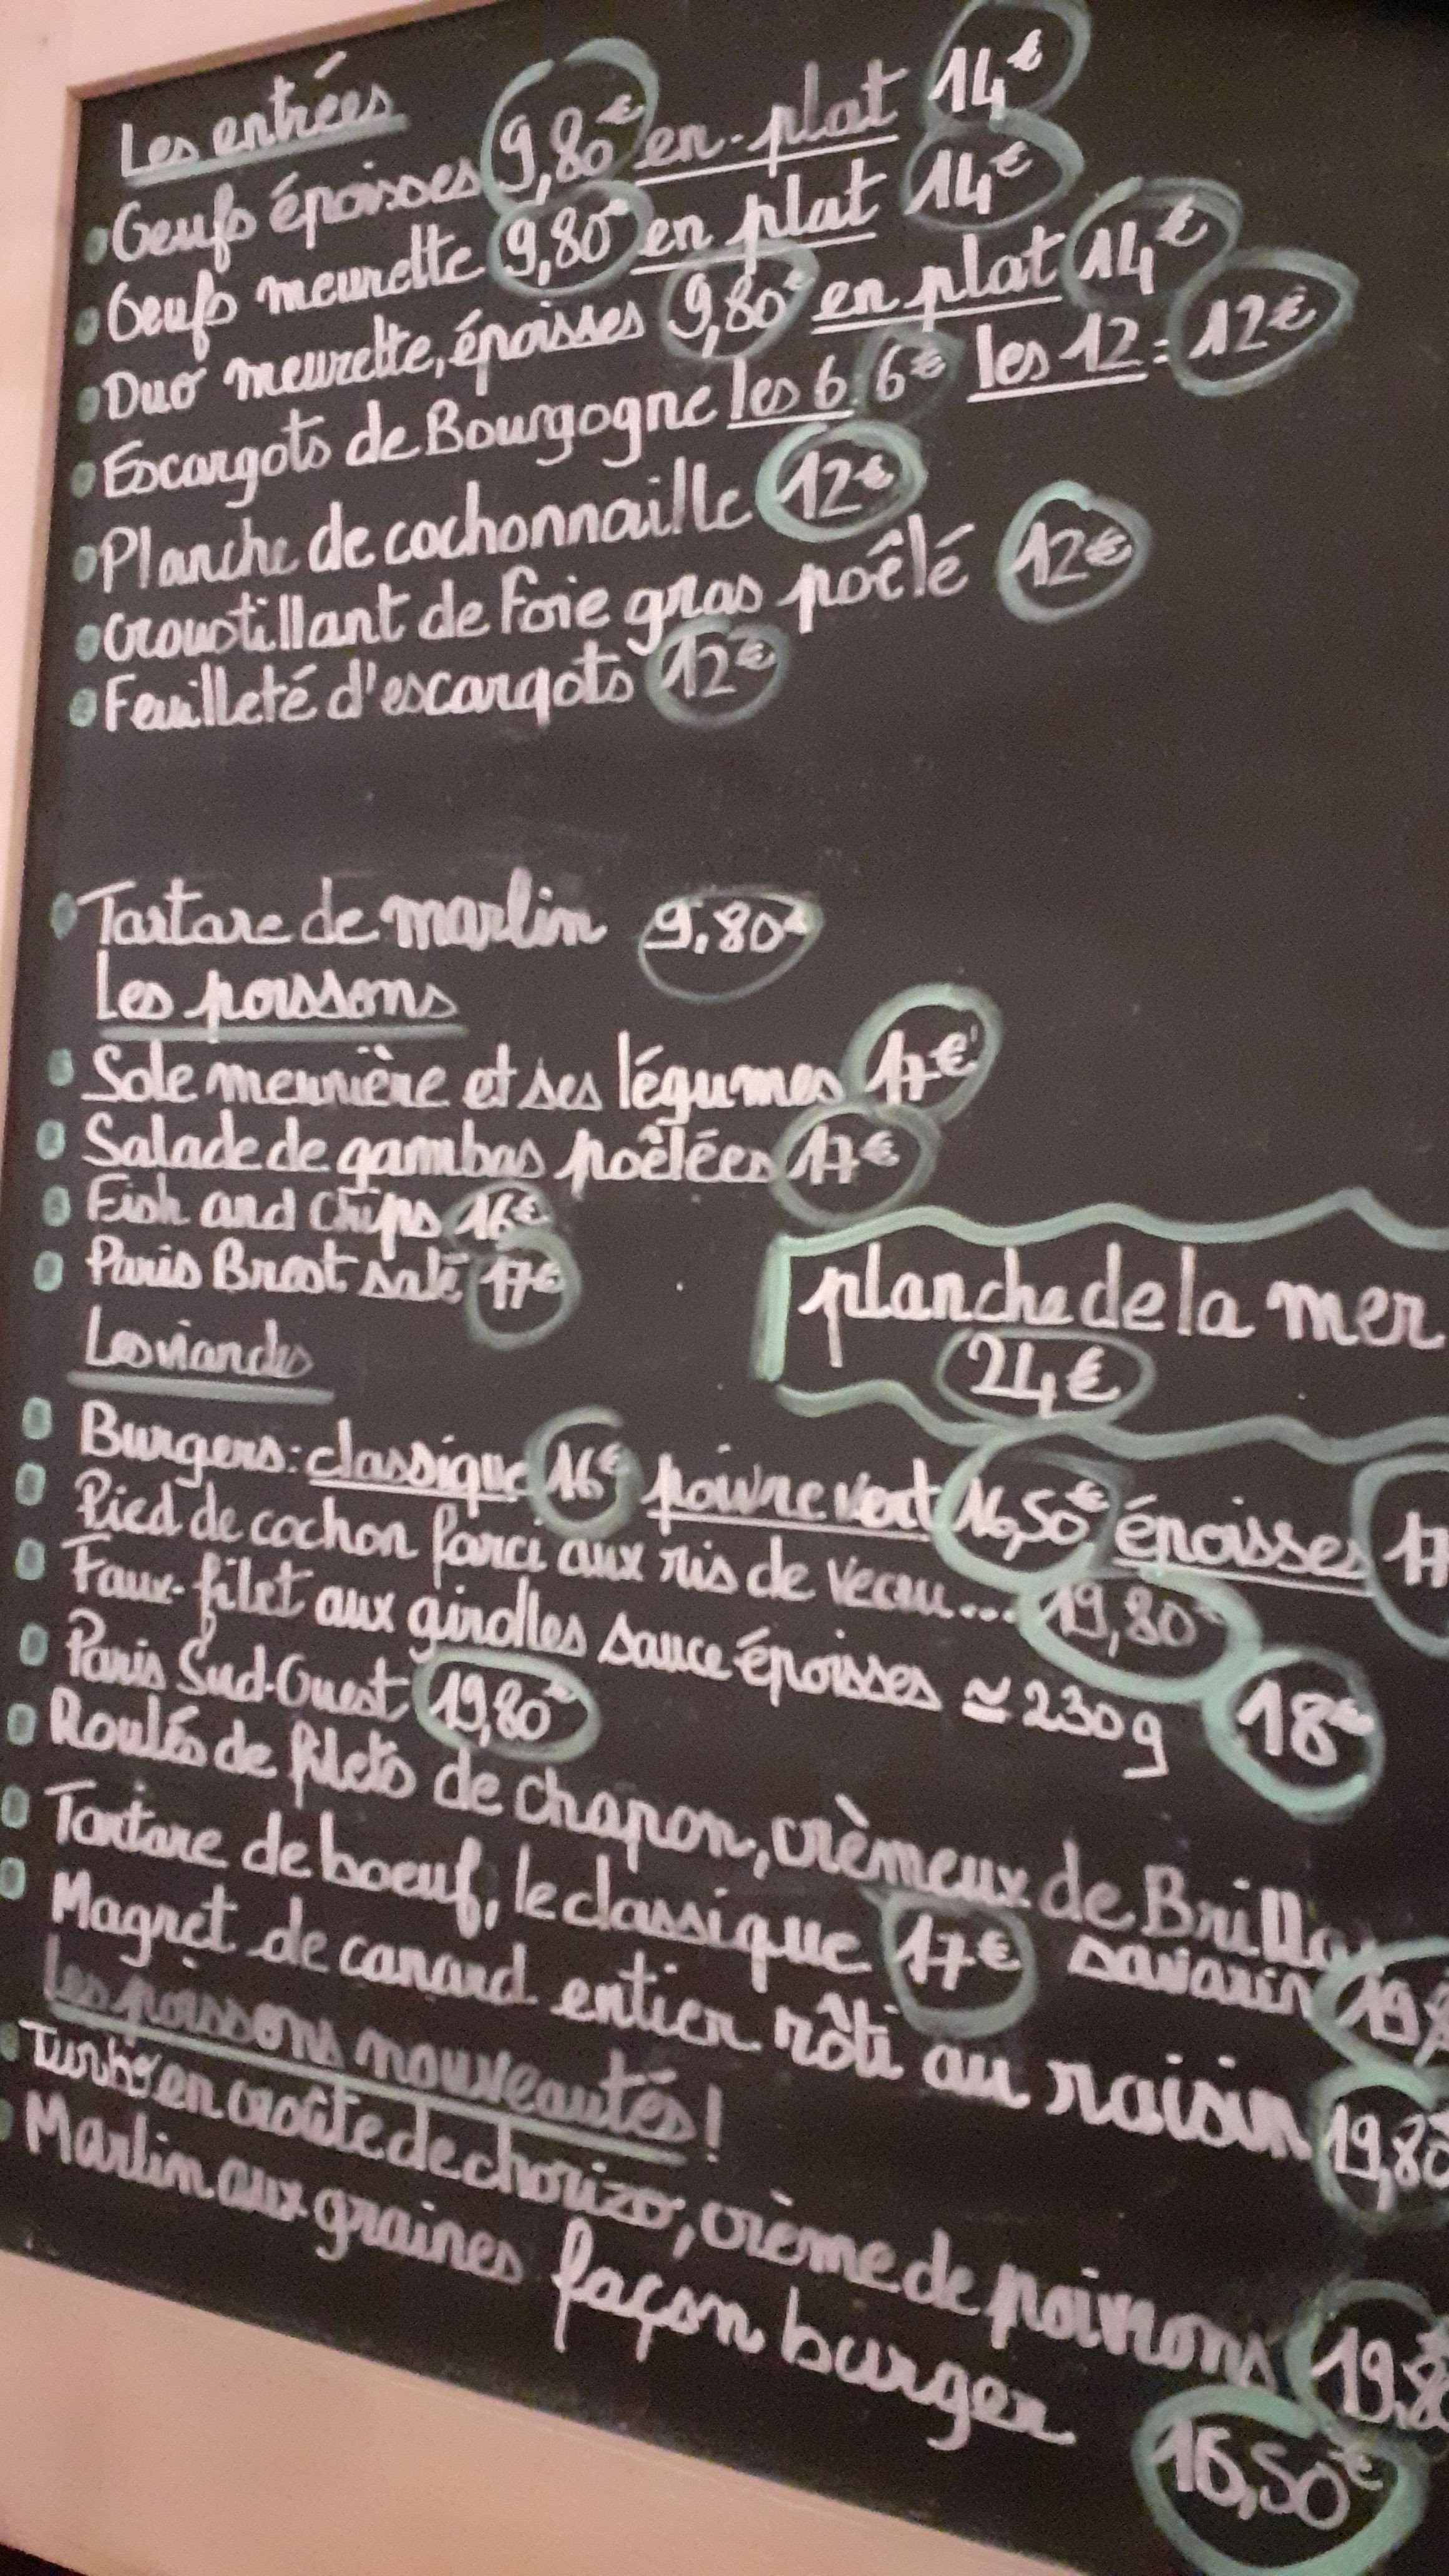 Les entrées
Oeufs époisses 9,80€ en-plat 14€
Oeufs meurette 9,80€ en plat 14€
Duo meurette, époisses 9,80€ en plat 14€
Escargots de Bourgogne les 6 6€ les 12 = 12€
Planche de cochonnaille 12€
Croustillant de Foie gras poêlé 12€
Feuilleté d'escargots 12€
Tartare de marlin 9,80€
Les poissons
Sole meunière et ses légumes 17€
Salade de gambas poêlées 17€
Fish and Chips 16€
Paris Brest salé 17€
planche de la mer
24€
Les viandes
Burgers: classique 16€ poivre vert 16,50€ époisses 17
Pied de cochon farci aux ris de veau... 19,80€
Faux-filet aux girolles sauce époisses ≃ 230g 18€
Paris Sud-Ouest 19,80€
Roulés de filets de chapon, crèmeux de Brilla
savarin 19,8
Tartare de boeuf, le classique 17€
Magret de canard entier rôti au raisin 19,80
Les poissons nouveautés!
Turbo en croûte de chorizo, crème de poivrons 19,80
Marlin aux graines façon burger 16,50€